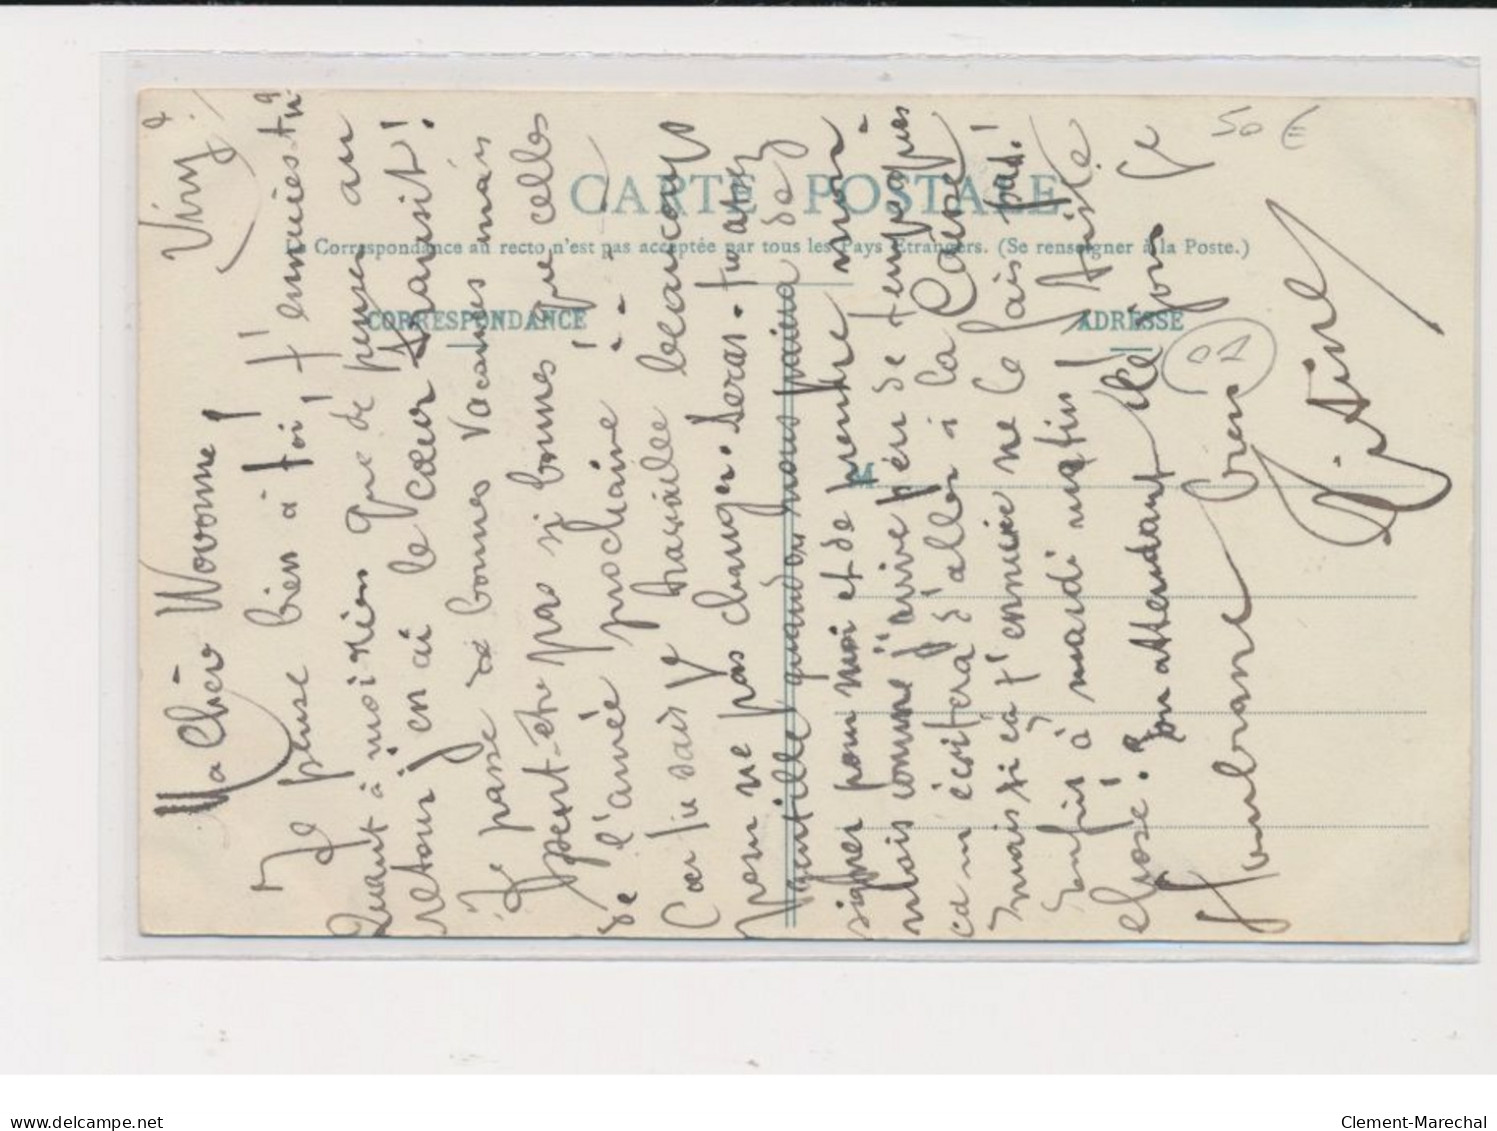 Ma Chère Yvonne !
Je pense bien à toi ! t'ennuies-tu
Quant à moi rien que de penser au
retour j'en ai le cœur
Je passe de bonnes vacances mais
peut-être pas si bonnes que celles
de l'année prochaine ! - - -
Car tu sais je travaille beaucoup
pour ne pas changer. Seras-tu assez
gentille quand on nous paiera de
signer pour moi et de prendre mon
mais comme j'arrive peu de temps après
ça m'évitera d'aller à la Caisse
mais si ça t'ennuie ne le fais pas !
Enfin à mardi matin !
chose ! En attendant le
Christine
CARTE POSTALE
La Correspondance au recto n'est pas acceptée par tous les Pays Etrangers. (Se renseigner à la Poste.)
CORRESPONDANCE
ADRESSE
M
50 €
01
delcampe.net
Clement-Marechal